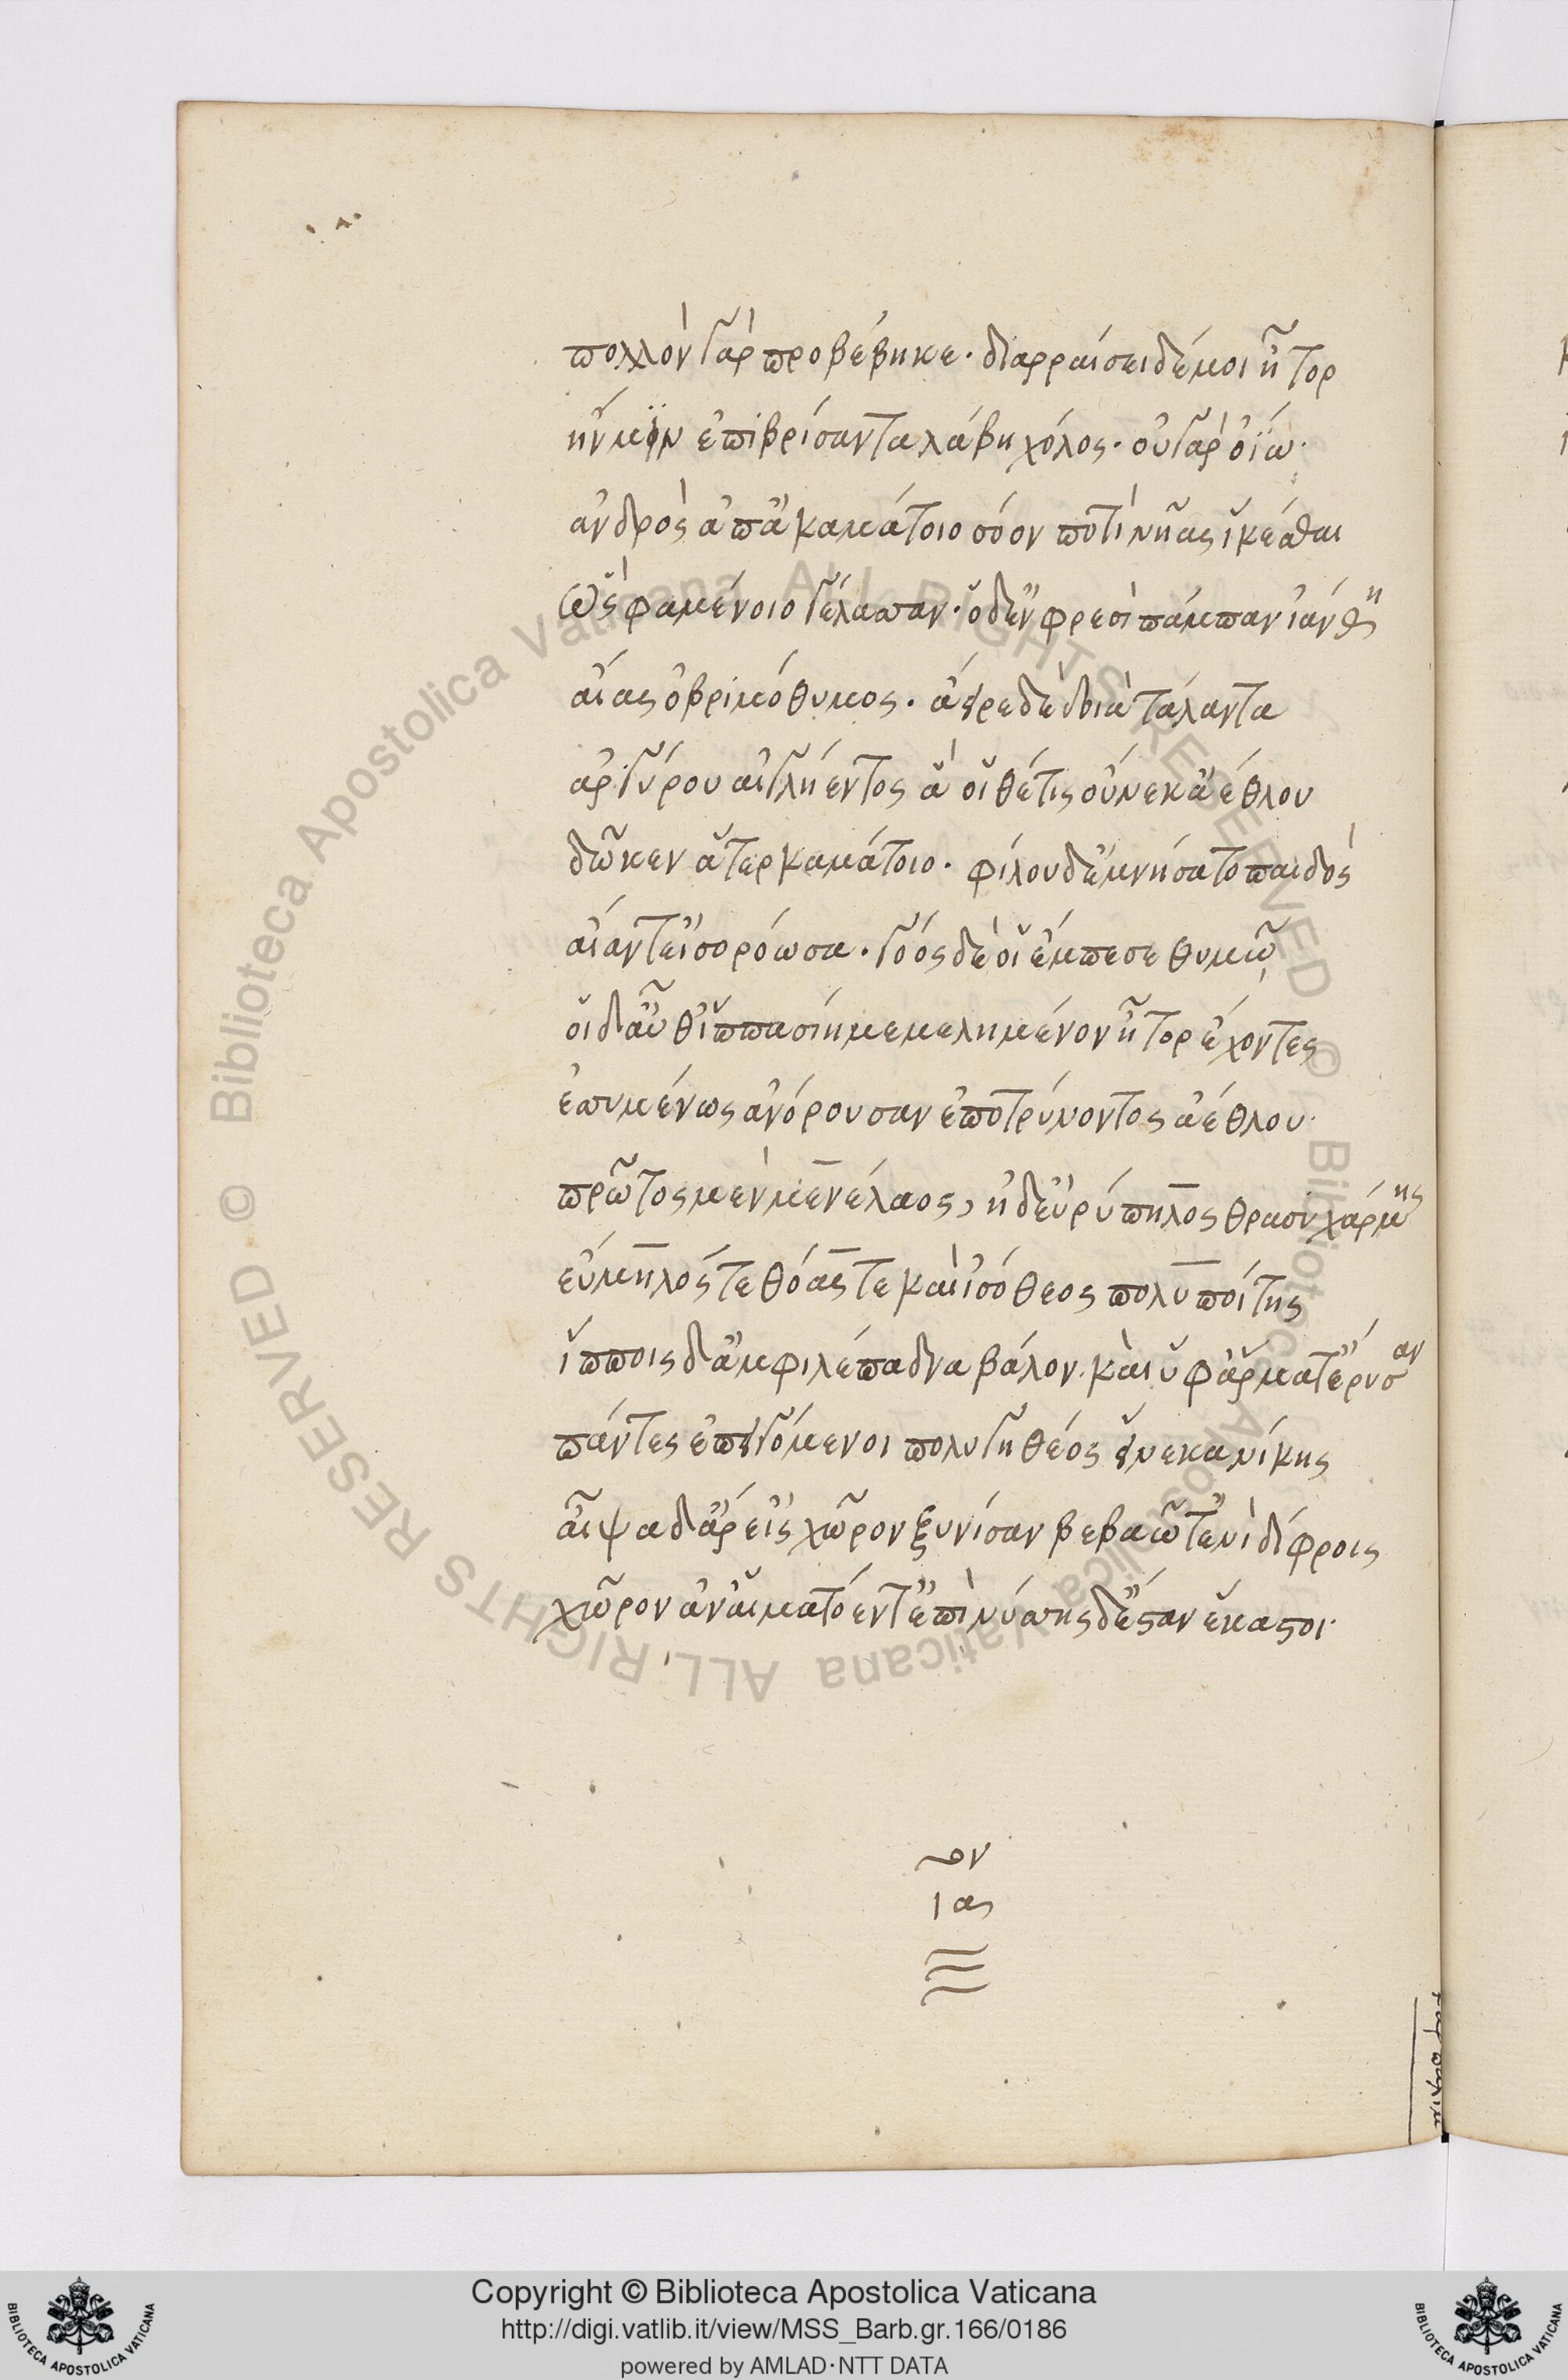 πολλὸν γὰρ προβέβηκε· διαρραίσει δέ μοι ἦτορ
ἤν μιν ἐπιβρίσαντα λάβη χόλος· οὐ γὰρ ὀΐω·
ἀνδρὸς ἀπ' ἀκαμάτοιο σόον ποτὶ νῆας ἱκέσθαι
ὣς φαμένοιο γέλασσαν· ὃ δ' ἐν φρεσὶ πάμπαν ἰάνθη
αἴας ὀβριμόθυμος· ἄειρε δὲ δοιὰ τάλαντα
ἀργύρου αἰγλήεντος ἅ οἱ θέτις οὕνεκ' ἀέθλου
δῶκεν ἄτερ καμάτοιο· φίλου δ' ἐμνήσατο παιδὸς
αἴαντ' εἰσορόωσα· γόος δέ οἱ ἔμπεσε θυμῶ
οἱ δ' αὖθ' ἱππασίη μεμελημένον ἦτορ ἔχοντες
ἐσσυμένως ἀνόρουσαν ἐποτρύνοντος ἀέθλου·
πρῶτος μὲν μενέλαος, ἠδ' εὐρύπηλος θρασυχάρμης
εὔμηλός τε θόας τε καὶ ἰσόθεος πολυποίτης
ἵπποις δ' ἀμφὶ λέπαδνα βάλον· καὶ ὑφ' ἅρματ' ἔρυσαν
πάντες ἐπειγόμενοι πολυγηθέος οὕνεκα νίκης
αἶψα δ' ἄρ' εἰς χῶρον ξυνίσαν βεβαῶτ' ἐνὶ δίφροις
χῶρον ἀν' αἱματόεντ' ἐπὶ νύσσης δ' ἔσταν ἕκαστοι·